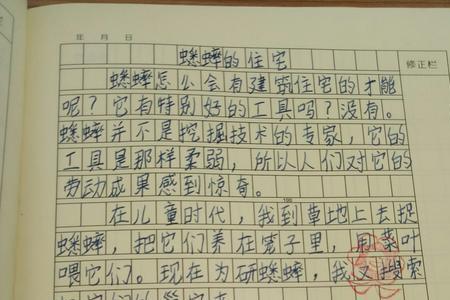 年 月 日
蟋蟀的住宅
修正栏
蟋蟀怎么会有建筑住宅的才能
呢？它有特别好的工具吗？没有。
蟋蟀并不是挖掘技术的专家，它的
工具是那样柔弱，所以人们对它的
劳动成果感到惊奇。
100
在儿童时代，我到草地上去捉
蟋蟀，把它们养在笼子里，用菜叶
喂它们。现在为研蟋蟀，我又搜索